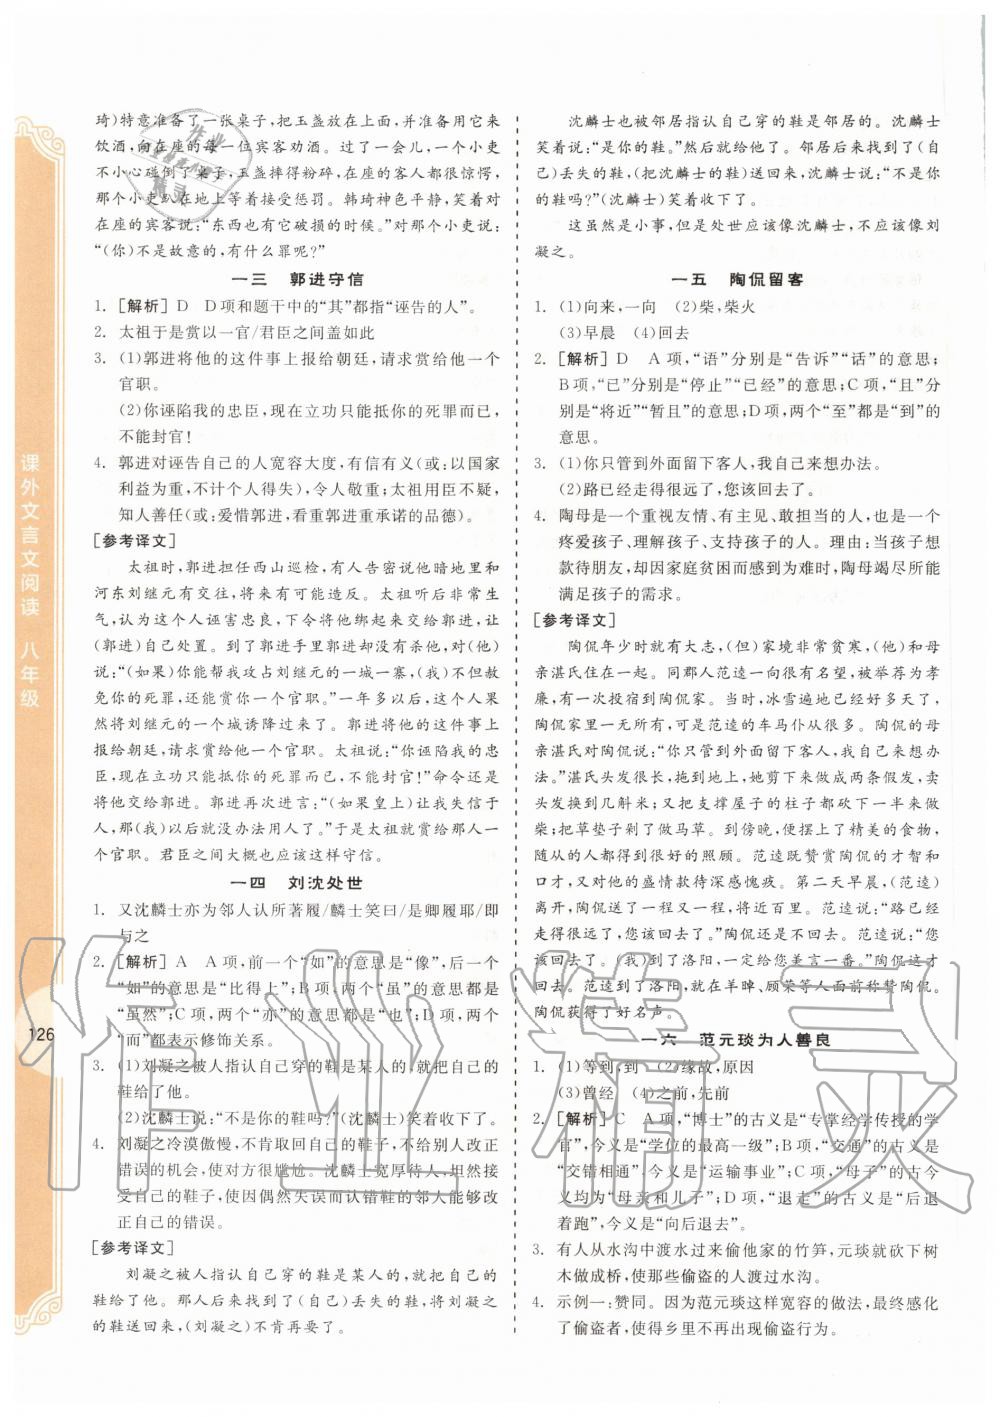 琦)特意准备了一张桌子,把玉盏放在上面,并用它来
饮酒,向在座的每一位宾客劝酒。过了一会儿,一个小吏
不小心碰倒了桌子,玉盏摔得粉碎,在座的客人都很惊愕,
那个小吏趴在地上等着接受惩罚。韩琦神色平静,笑着对
在座的宾客说:“东西也有它破损的时候。”回头对小吏说:
“(你)不是故意的,有什么罪呢?”
一三 郭进守信
1. [解析] D D项和题干中的“其”都指“诬告的人”。
2. 太祖于是赏以一官/君臣之间盖如此
3. (1)郭进将他的这件事上报给朝廷,请求赏给他一个
官职。
(2)你诬陷我的忠臣,现在立功只能抵你的死罪而已,
不能封官!
4. 郭进对诬告自己的人宽容大度,有信有义(或:以国家
利益为重,不计个人得失),令人敬重;太祖用臣不疑,
知人善任(或:爱惜郭进,看重郭进重承诺的品德)。
[参考译文]
太祖时,郭进担任西山巡检,有人告密说他暗地里和
河东刘继元有交往,将来有可能造反。太祖听后非常生
气,认为这个人诬害忠良,下令将他绑起来交给郭进,让
(郭进)自己处置。郭进得到了他却没有杀他,对(他)
说:“(如果)你能帮我攻占刘继元的一城一寨,(我)不但赦
免你的死罪,还能赏你一个官职。”一年多以后,这个人果
然将刘继元的一个城诱降过来了。郭进将他的这件事上
报给朝廷,请求赏给他一个官职。太祖说:“你诬陷我的忠
臣,现在立功只能抵你的死罪而已,不能封官!”命令还是
将他交给郭进。郭进再次进言:“(如果皇上)让我失信于
人,那(我)以后就没办法用人了。”于是太祖赏给那人一
个官职。君臣之间大概也应该这样守信。
一四 刘沈处世
1. 又沈麟士亦为邻人认所著履/麟士笑曰/是卿履耶/即
与之
2. [解析] A A项,前一个“如”的意思是“像”,后一个
“如”的意思是“比得上”;B项,两个“虽”的意思都是
“虽然”;C项,两个“亦”的意思都是“也”;D项,两个
“而”都表示修饰关系。
3. (1)刘凝之被人指认自己穿的鞋是某人的,就把自己的
鞋给了他。
(2)沈麟士说:“不是你的鞋吗?”(沈麟士)笑着收下了。
4. 刘凝之冷漠傲慢,不肯取回自己的鞋子,不给别人改正
错误的机会,使人很尴尬。沈麟士宽厚待人,坦然接
受自己的鞋子,使因偶然失误而认错鞋的邻人能够改
正自己的错误。
[参考译文]
刘凝之被人指认自己穿的鞋是某人的,就把自己的
鞋给了他。这个人后来又找到了(自己)丢失的鞋,将(刘凝之)
的鞋送回来,(刘凝之)不肯再要了。
沈麟士也被邻居指认自己穿的鞋是邻居的。沈麟士
笑着说:“是你的鞋。”就给了邻居。邻居后来找到了(自
己)丢失的鞋,(把沈麟士的鞋)送回来,沈麟士说:“不是你
的鞋吗?”(沈麟士)笑着收下了。
这虽然是小事,但是处世应该像沈麟士,不应该像刘
凝之。
一五 陶侃留客
1. (1)向来,一向 (2)柴,柴火
(3)早晨 (4)回去
2. [解析] D A项,“语”分别是“告诉”“话”的意思;
B项,“已”分别是“停止”“已经”的意思;C项,“且”分
别是“将近”“暂且”的意思;D项,两个“至”都是“到”的
意思。
3. (1)你只管到外面留下客人,我自己来想办法。
(2)路已经走得很远了,您该回去了。
4. 陶母是一个重视友情、有主见、敢担当的人,也是一个
疼爱孩子、理解孩子、支持孩子的人。理由:孩子想
款待朋友,却因家庭贫困而感到为难时,陶母尽力
满足孩子的需求。
[参考译文]
陶侃年少时就有大志,(但)家境非常贫寒,(他)和母
亲湛氏住在一起。同郡人范逵一向很有名望,被举荐为孝
廉,有一次投宿到陶侃家。当时,冰雪遍地已经好多天了,
陶侃家里一无所有,可是范逵的车马仆从很多。陶侃的母
亲湛氏对陶侃说:“你只管到外面留下客人,我自己来想办
法。”湛氏头发很长,拖到地上,她剪下来做成两条假发,卖
头发换到几斛米;又把支撑屋子的柱子都砍下一半来做
柴;把草垫子剁了做马草。到傍晚,便摆上了精美的食物,
随从的人都得到很好的照顾。范逵既赞赏陶侃的才智和
口才,又对他的盛情款待深感愧疚。第二天早晨,(范逵)
离开,陶侃送了一程又一程,将近百里。范逵说:“路已经
走得很远了,您该回去了。”陶侃还是不回去。范逵说:“您
该回去了。等我到了洛阳,一定给您美言一番。”陶侃这才
回去。(范逵)到了洛阳,就在羊晫、顾荣等人面前称赞陶侃,
陶侃获得了好名声。
一六 范元琰为人善良
1. (1)等到,到 (2)缘故,原因
(3)曾经 (4)之前,先前
2. [解析] C A项,“博士”的古义是“专掌经学传授的学
官”,今义是“学位的最高一级”;B项,“交通”的古义是
“交错相通”,今义是“运输事业”;C项,“母子”的古今
义均为“母亲和儿子”;D项,“退走”的古义是“后退
着跑”,今义是“向后退去”。
3. 有人从水沟中渡水过来偷他家的竹笋,元琰就砍下树
木做成桥,使偷盗的人渡过水沟。
4. 示例一:赞同。因为范元琰这样宽容的做法,最终感化
了偷盗者,使得乡里不再出现偷盗行为。
课外文言文阅读 八年级
126
作业精灵